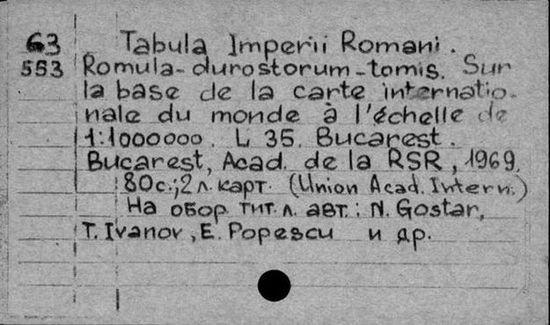 63 Tabula Imperii Romani.
553 Romula-durostorum-tomis. Sur
la base de la carte internatio-
nale du monde à l'échelle de
1:1000000. L 35. Bucarest.
Bucarest, Acad. de la RSR, 1969.
80с.; 2 л. карт. (Union Acad. Intern.)
На обор. тит. л. авт.: N. Gostar,
T. Ivanov, E. Popescu и др.